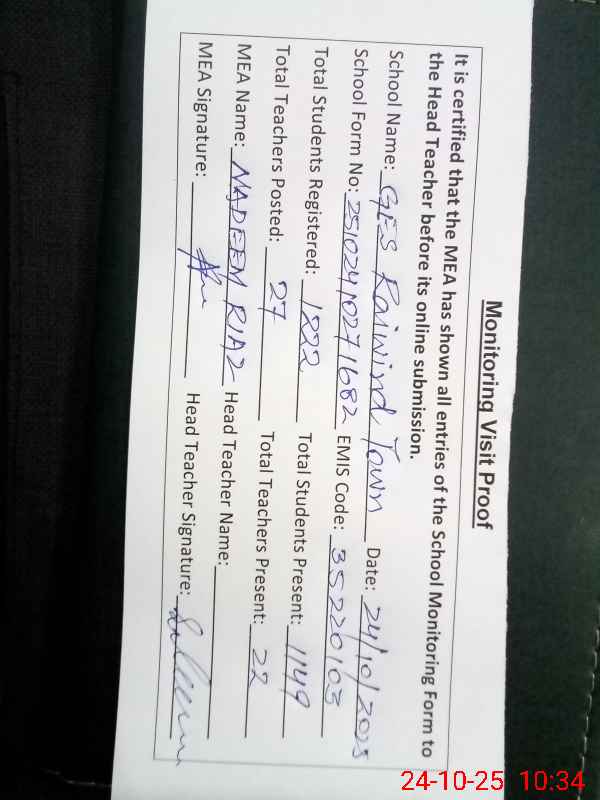 Monitoring Visit Proof
It is certified that the MEA has shown all entries of the School Monitoring Form to
the Head Teacher before its online submission.
School Name: GES Raiwind Town Date: 24/10/2025
School Form No: 25102410271682 EMIS Code: 35220103
Total Students Registered: 1222 Total Students Present: 1149
Total Teachers Posted: 27 Total Teachers Present: 22
MEA Name: NADEEM RIAZ Head Teacher Name:
MEA Signature: Head Teacher Signature:
24-10-25 10:34